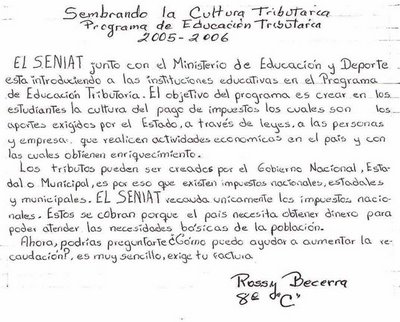 Sembrando la Cultura Tributaria
Programa de Educación Tributaria
2005-2006
EL SENIAT junto con el Ministerio de Educación y Deporte
esta introduciendo a las instituciones educativas en el Programa
de Educación Tributaria. El objetivo del programa es crear en los
estudiantes la cultura del pago de impuestos los cuales son los
aportes exigidos por el Estado, a través de leyes, a las personas
y empresa, que realicen actividades economicas en el pais y con
las cuales obtienen enriquecimiento.
Los tributos pueden ser creados por el Gobierno Nacional, Esta-
dal o Municipal, es por eso que existen impuestos nacionales, estadales
y municipales. EL SENIAT recauda unicamente los impuestos nacio-
nales. Estos se cobran porque el país necesita obtener dinero para
poder atender las necesidades básicas de la población.
Ahora, podrías preguntarte ¿Cómo puedo ayudar a aumentar la re-
caudación?, es muy sencillo, exige tu factura
Rossy Becerra
8º "C"